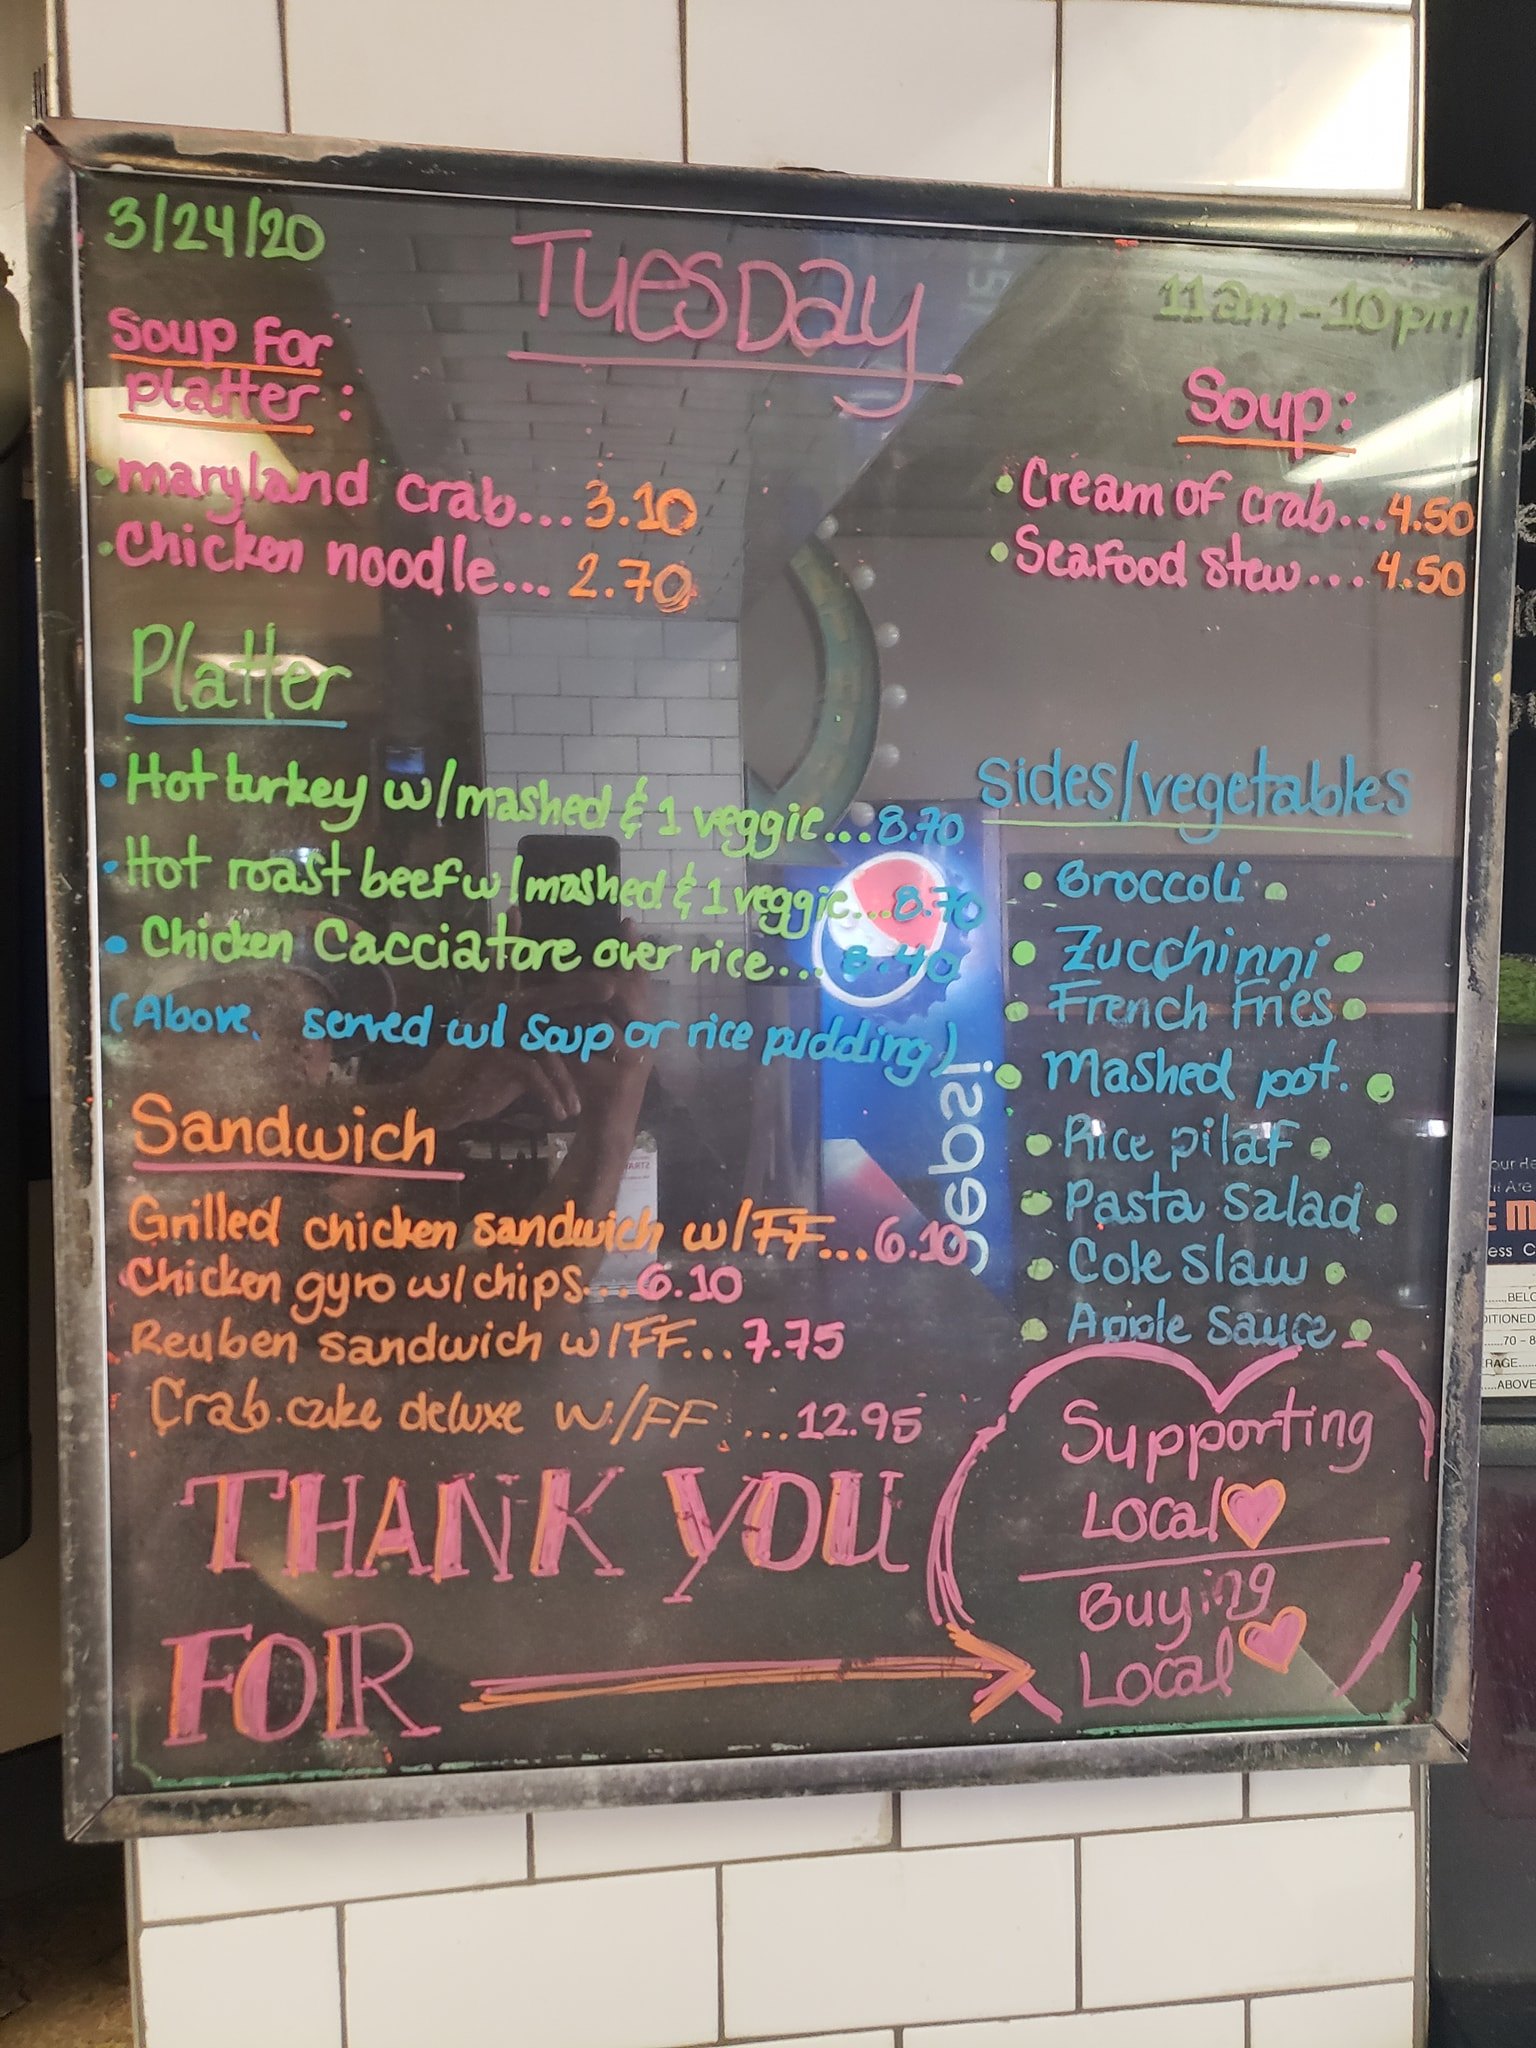 3/24/20
Tuesday
11am-10pm
Soup For
platter:
• maryland crab... 3.10
• Chicken noodle... 2.70
Soup:
• Cream of crab...4.50
• Seafood stew... 4.50
Platter
• Hot turkey w/mashed & 1 veggie...8.70
• Hot roast beef w/mashed & 1 veggie...8.70
• Chicken Cacciatore over rice... 8.40
(Above served w/ Soup or rice pudding)
Sides/vegetables
• Broccoli •
• Zucchinni •
• French Fries •
• Mashed pot. •
• Rice pilaf •
• Pasta Salad •
• Cole Slaw •
• Apple Sauce •
Sandwich
Grilled chicken sandwich w/FF...6.10
Chicken gyro w/chips...6.10
Reuben sandwich w/FF...7.75
Crab cake deluxe w/FF ...12.95
THANK YOU
FOR
Supporting
Local
Buying
Local
pepsi